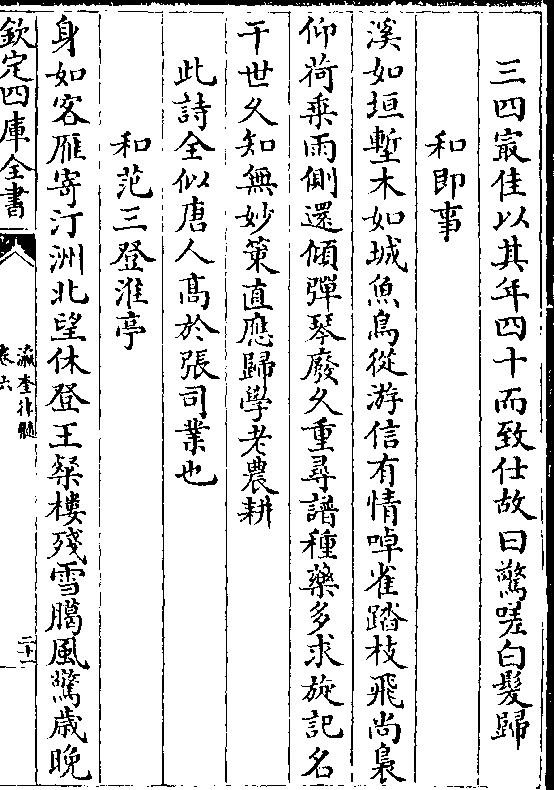 三四㝡佳以其年四十而致仕故曰驚嗟白髮歸
和即事
溪如垣塹木如城魚鳥從游信有情啅雀踏枝飛尚裊
仰荷乗雨側還傾彈琴廢久重尋譜種藥多求旋記名
干世久知無妙策直應歸學老農耕
此詩全似唐人髙於張司業也
和范三登淮亭
身如客雁寄汀洲北望休登王粲樓殘雪臈風驚歳晩
欽定四庫全書
瀛奎律髓
卷六
二十一